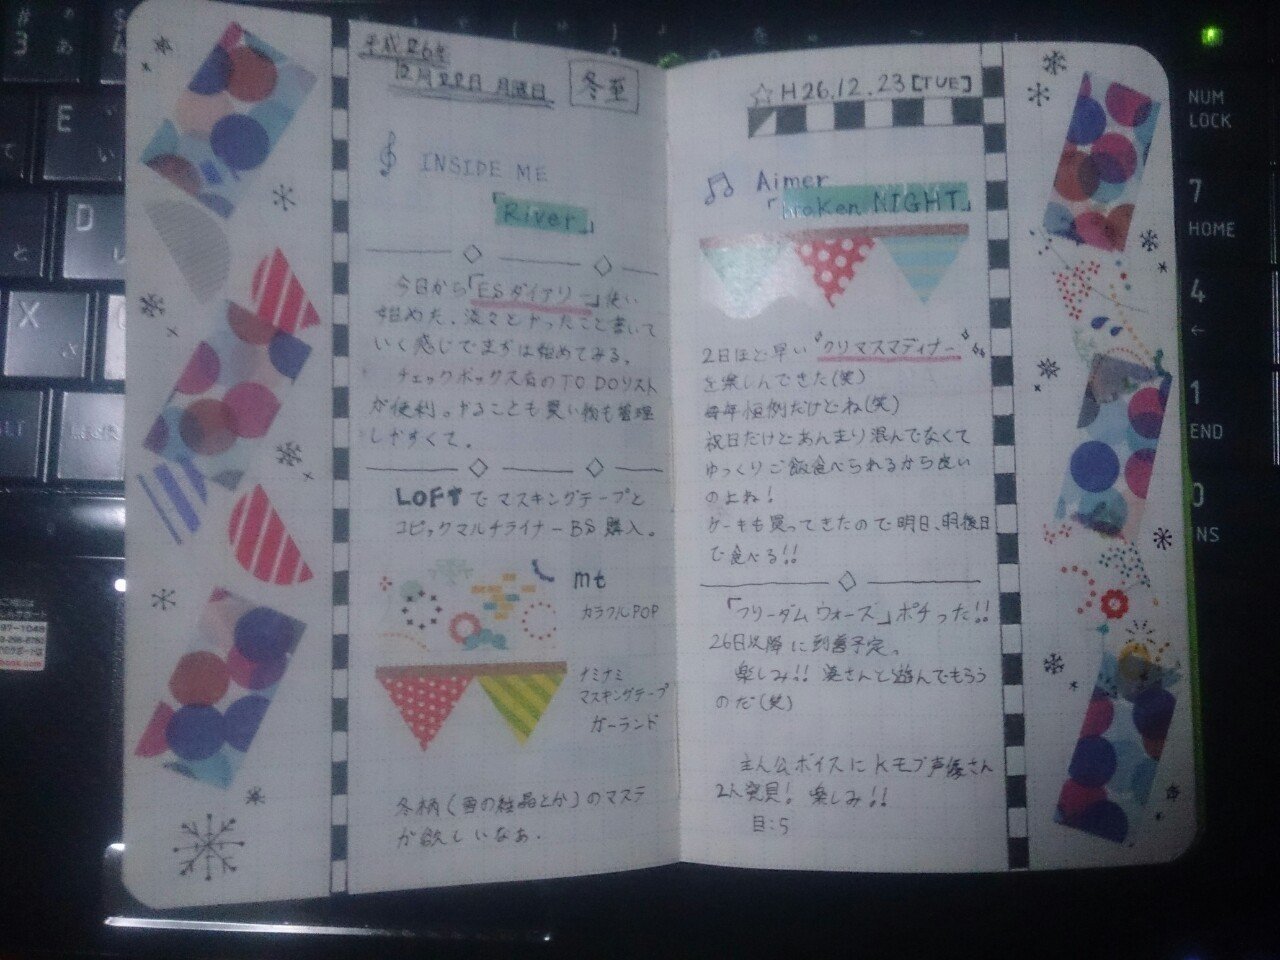 平成26年
12月22日 月曜日
冬至
INSIDE ME
「River」
今日から「ESダイアリー」使い
始めた。淡々とやったこと書いて
いく感じでまずは始めてみる。
チェックボックス有のTO DOリスト
が便利。やることも買い物も管理
しやすくて。
LOFTでマスキングテープと
コピックマルチライナーBS購入。
mt
カラフルPOP
ナミナミ
マスキングテープ
ガーランド
冬柄(雪の結晶とか)のマステ
が欲しいなぁ.
☆H26.12.23[TUE]
Aimer
NIGHT」
2日ほど早い"クリマスマディナー"
を楽しんできた(笑)
毎年恒例だけどね(笑)
祝日だけどあんまり混んでなくて
ゆっくりご飯食べられるから良い
のよね!
ケーキも買ってきたので明日、明後日
で食べる!!
「フリーダムウォーズ」ポチった!!
26日以降に到着予定。
楽しみ!! さんと遊んでもらう
のだ(笑)
主人公ボイスにKモブ声優さん
2人発見! 楽しみ!!
目:5
3
あ
E
い
D
と
X
さ
NUM
LOCK
7
HOME
4
←
1
END
0
INS